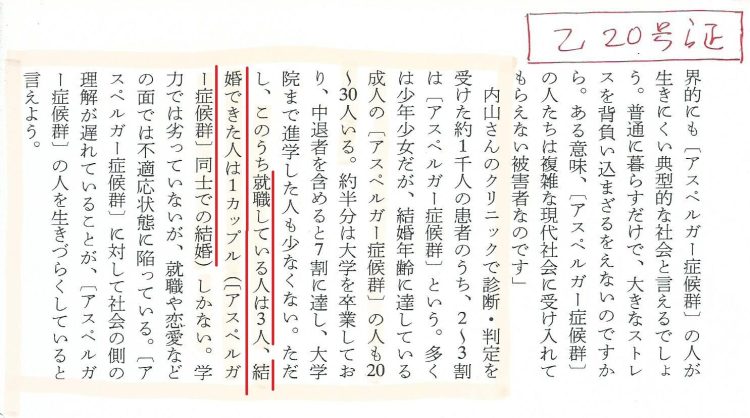 乙20号証
界的にも〔アスペルガー症候群〕の人が
生きにくい典型的な社会と言えるでしょ
う。普通に暮らすだけで、大きなストレ
スを背負い込まざるをえないのですか
ら。ある意味、〔アスペルガー症候群〕
の人たちは複雑な現代社会に受け入れて
もらえない被害者なのです」
内山さんのクリニックで診断・判定を
受けた約1千人の患者のうち、2〜3割
は〔アスペルガー症候群〕という。多く
は少年少女だが、結婚年齢に達している
成人の〔アスペルガー症候群〕の人も20
〜30人いる。約半分は大学を卒業してお
り、中退者を含めると7割に達し、大学
院まで進学した人も少なくない。ただ
し、このうち就職している人は3人、結
婚できた人は1カップル（〔アスペルガ
ー症候群〕同士での結婚）しかない。学
力では劣っていないが、就職や恋愛など
の面では不適応状態に陥っている。〔ア
スペルガー症候群〕に対して社会の側の
理解が遅れていることが、〔アスペルガ
ー症候群〕の人を生きづらくしていると
言えよう。